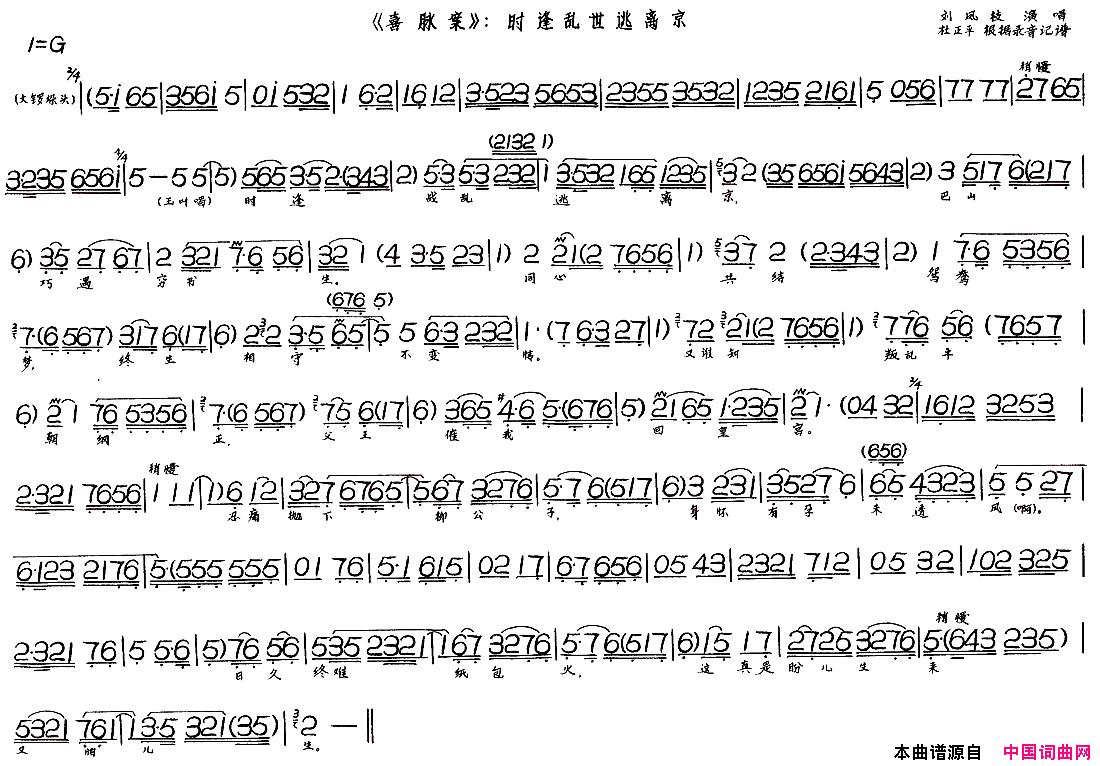 《喜脉案》：时逢乱世逃离京
刘凤枝 演唱
杜正平 根据录音记谱
1=G
稍慢
2/4 (大锣垛头) | (5·i 65 | 356i 5 | 0i 532 | 1 6·2 | 1612 | 3·523 5653 | 2355 3532 | 1235 2161 | 5 056 | 77 77 | 2765
(2132 1)
3235 656i | 1/4 | 5 – 5 5 | 5) 565 352(343 | 2) 53 53 232 | 1 3·532 165 1235 | 32 (35 656i 5643 | 2) 3 517 6(217 |
(玉叶唱) 时 逢 战 乱 逃 离 京, 巴 山
6) 35 27 67 | 2 321 7·6 56 | 321 (4 3·5 23 | 1) 2 21(2 7656 | 1) 37 2 (2·343 | 2) 1 7·6 5356 |
巧 遇 穷 书 生。 同 心 共 结 鸳 鸯
(676 5)
7·(6 567) | 317 6(17 | 6) 22 3·5 65 | 5 5 6·3 232 | 1·(7 63 27 | 1) 72 21(2 7656 | 1) 776 56 (7657
梦, 终 生 相 守 不 变 情。 又 谁 知 叛 乱 平
6) 2 1 76 5356 | 7·(6 567) | 75 6(17 | 6) 365 #4·6 5·(676 | 5) 2165 1·235 | 2 1·(04 32 | 2/4 1612 3253
朝 纲 正, 父 王 催 我 回 皇 宫。
稍慢 (656)
2·321 7656 | 1 1 1 | 1) 6 12 | 327 6765 | 567 3276 | 5·76(517 | 6) 3 231 | 3527 6 | 65 4323 | 5 5 27 |
忍 痛 抛 下 柳 公 子, 身 怀 有 孕 未 透 风 (啊)。
6·123 2176 | 5·(555 555 | 01 76 | 5·1 615 | 02 17 | 6·7 656 | 05 43 | 2321 712 | 05 32 | 102 325 |
稍慢
2·321 76 | 5 5·6 | 5) 76 6 | 535 2321 | 167 3276 | 5·76(517 | 6) 15 17 | 2725 3276 | 5·(643 235)
日 久 终 难 纸 包 火, 这 真 是 盼 儿 生 来
5321 761 | 13·5 321(35) | 2 – ‖
又 怕 儿 生。
本曲谱源自 中国词曲网